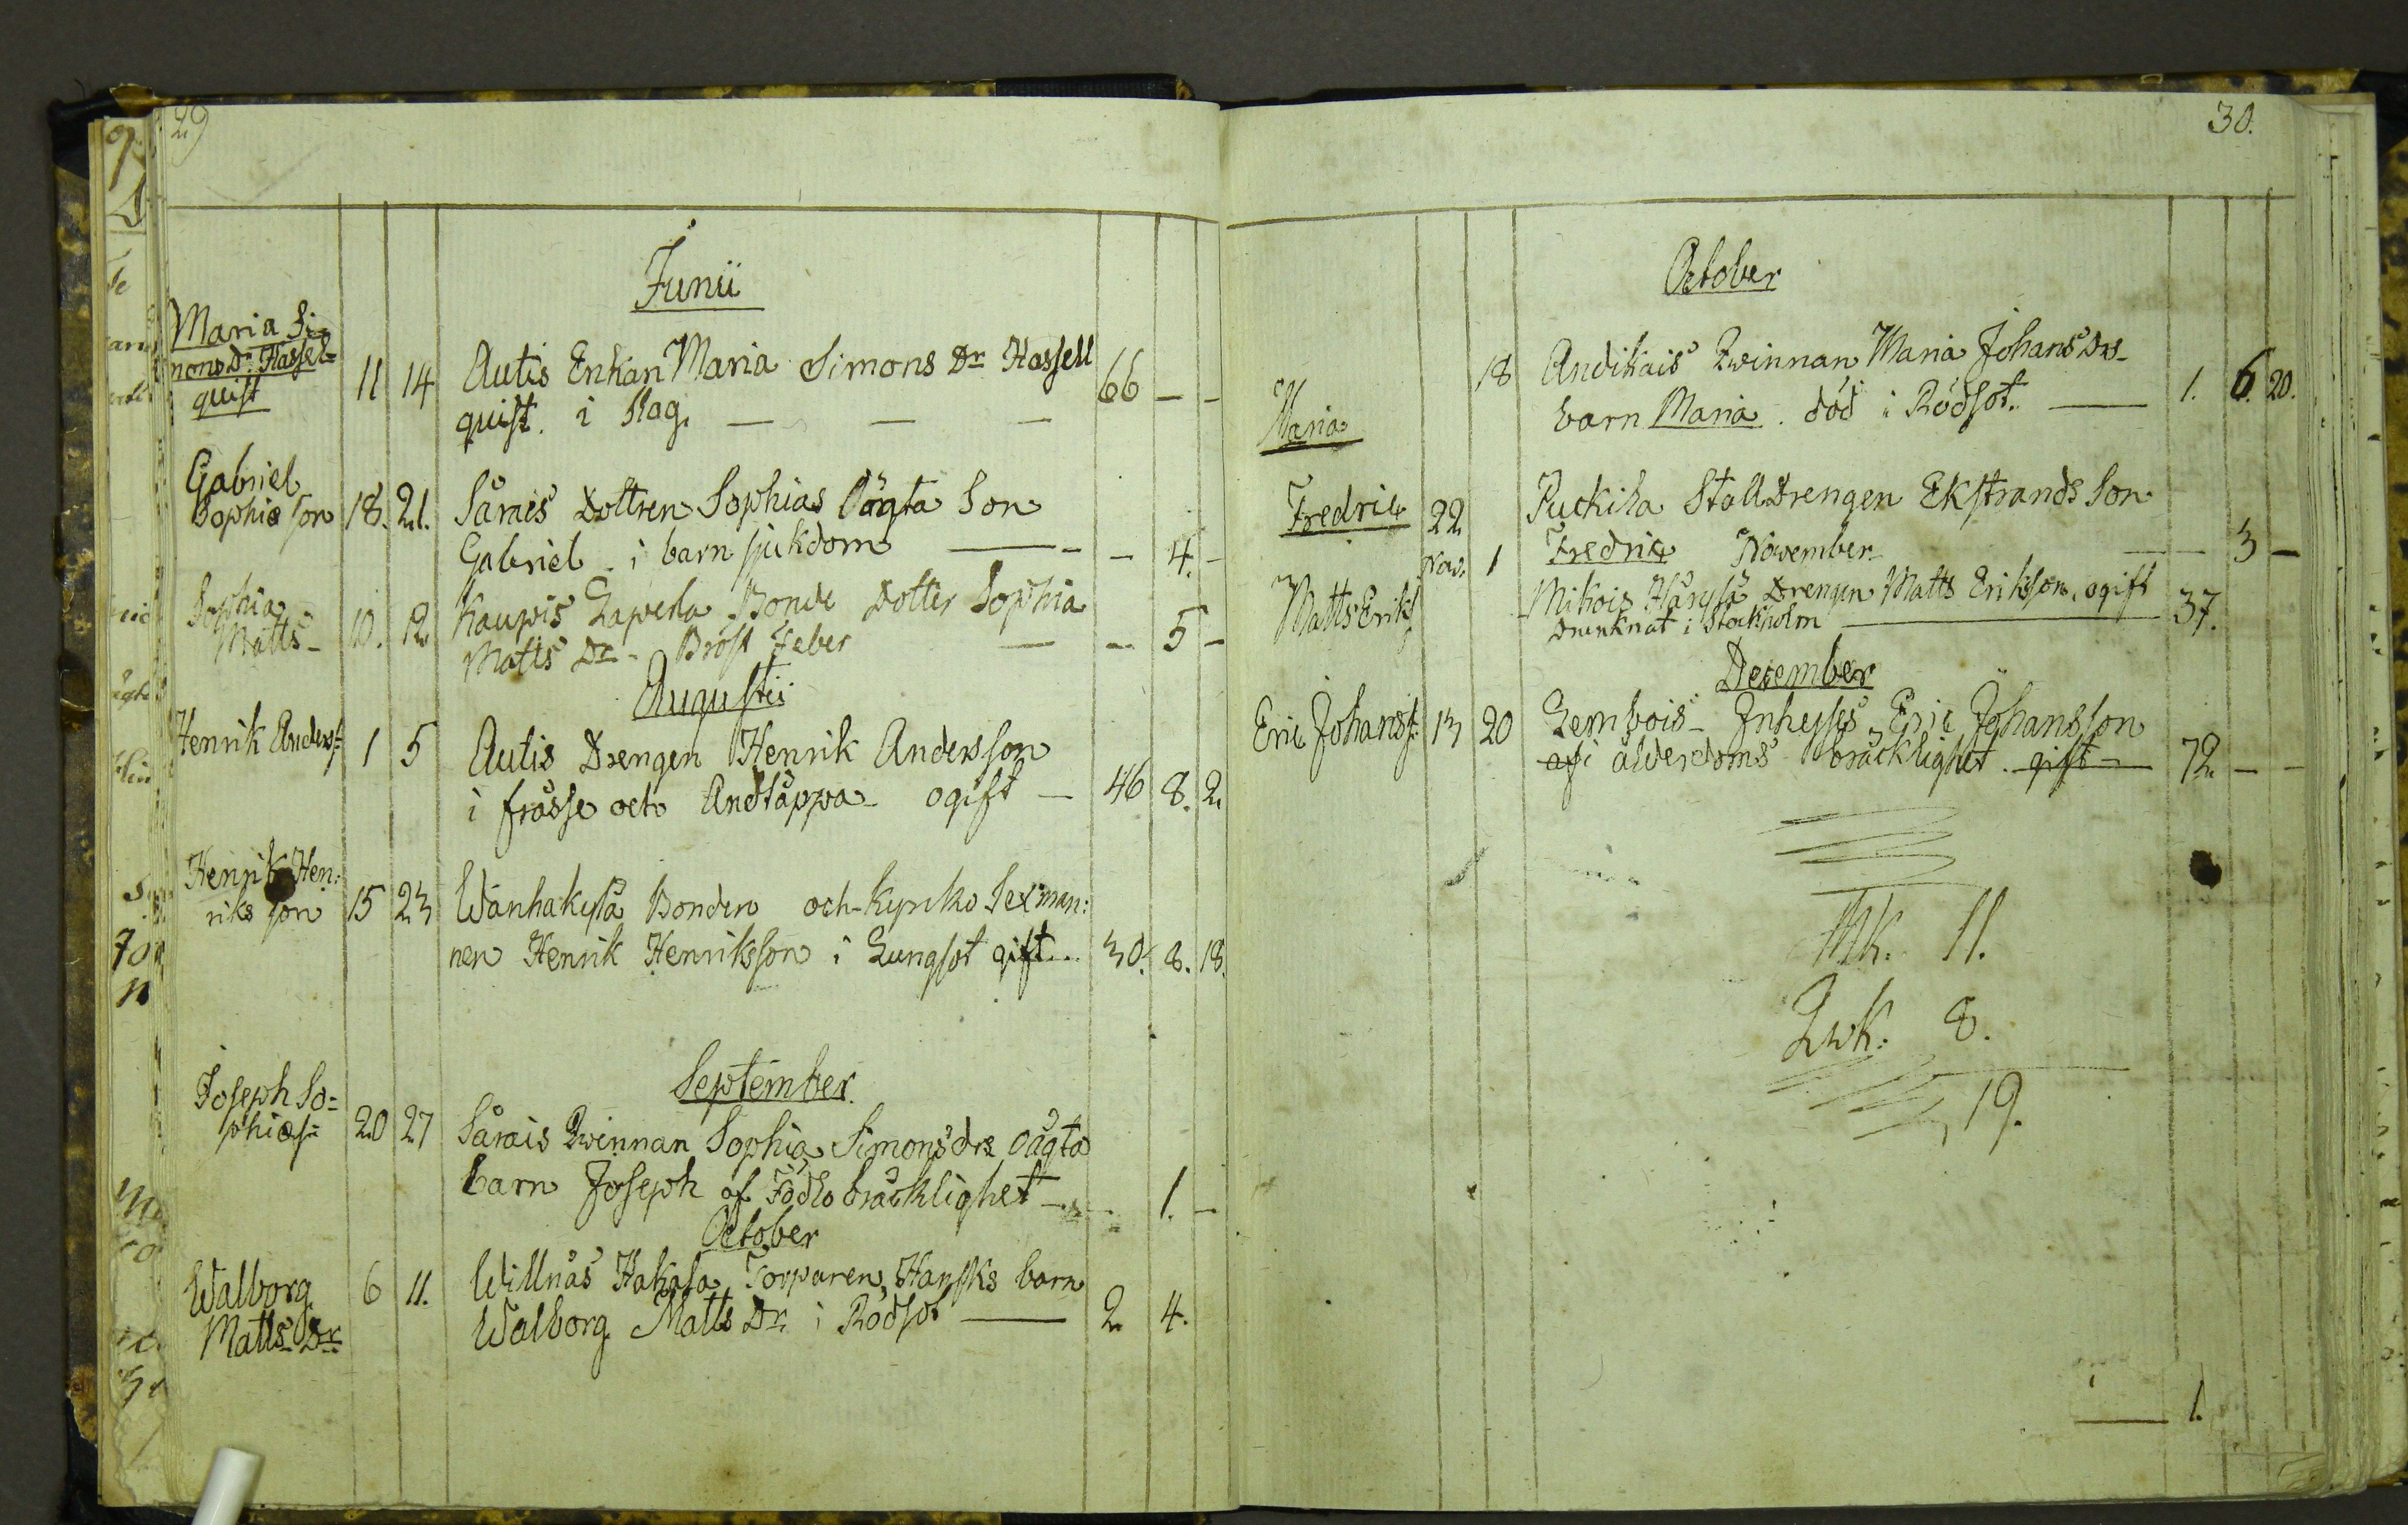 29
Junii
Maria Si=
mons Dr Hassel=
quist
11 14 Autis Enkan Maria Simons Dr Hassell 66 - -
quist. i Slag. — — —
Gabriel
Sophiæ son 18. 21. Särais Dottren Sophias Oägta Son
Gabriel i barn sjukdom — - - 4. -
Sophia
Matts - 10. 12 Kaupis Lapila Bonde Dotter Sophia
Matts Dr - Bröst Feber — - 5 -
Augustii
Henrik Anderss: 1 5 Autis Drengen Henrik Andersson
i frässe och Andtäppa - ogift — 46 8. 2.
Henrik Hen:
riks son 15 23 Wanhakylä Bonden och Kyrko Sexman:
nen Henrik Henriksson i Lungsot gift... 30. 8. 18.
September.
Joseph So=
phiæs: 20 27 Särais Qwinnan Sophia Simonsdrs oägta
barn Joseph af Födslo bräcklighet - - 1. -
October
Walborg 6 11. Willnäs Torparen, barn
Matts Dr Walborg Matts Dr i Rödsot — 2 4.
30.
October
18 Andikais Qwinnan Maria Johans Drs
Maria barn Maria. död i Rödsot. — 1. 6. 20.
Fredric 22 Puckila StallDrengen Ekstrands Son
Nov. 1 Fredric November — — 3 —
Matts Eriks Mikois Drengen Matts Eriksson, ogift
Drunknat i Stockholm — 37.
December
Eric Johanss: 13 20 Lembois - Inhyses Eric Johansson
af i ålderdoms bräcklighet. gift — 72 - -
Mk. 11.
Qwk. 8.
19.
1.